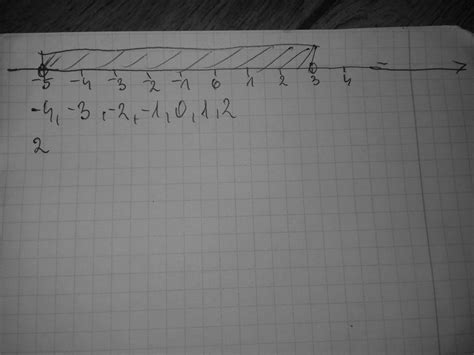 -5 -4 -3 -2 -1 0 1 2 3 4
-4, -3, -2, -1, 0, 1, 2
2